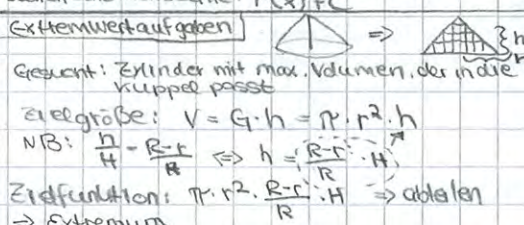 Extremwertaufgaben
=> h
r
Gesucht: Zylinder mit max. Volumen, der in die
Kuppel passt
Zielgröße: V = G·h = π·r²·h
NB: h/H = R-r/R <=> h = R-r/R · H
Zielfunktion: π·r²· R-r/R ·H => ableiten
-> Extremum